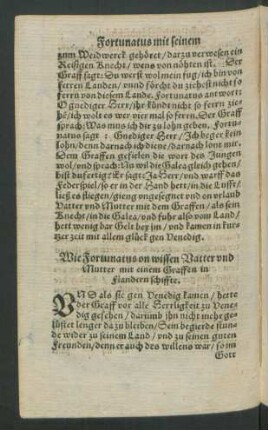 Fortunatus mit seinem
zum Weidwerck gehöret / darzu verwesen ein
Reisigen Knecht / wens von nöhten ist. Der
Graff sagt: Du werst wol mein fug / ich bin von
ferren Landen / vnnd förcht du ziehest nicht so
ferrn von diesem Lande. Fortunatus antwort:
O gnediger Herr / ihr kündt nicht so ferrn zie-
hē / ich wolt es wer vier mal so ferrn. Der Graff
sprach: Was mus ich dir zu lohn geben. Fortu-
natus sagt: Gnediger Herr / Ich beger kein
Lohn / denn darnach ich diene / darnach lone mir.
Dem Graffen gefielen die wort des Jungen
wol / vnd sprach: Nu wil die Galea gleich gehen /
bist du fertig: Er sagt: Ja Herr / vnd warff das
Federspiel / so er in der Hand hett / in die Lufft /
ließ es fliegen / gieng vngesegnet vnd on vrlaub
Vatter vnd Mutter mit dem Graffen / als sein
Knecht / in die Galea / vnd fuhr also vom Land /
hett wenig bar Gelt bey jm / vnd kamen in kur-
tzer zeit mit allem glück gen Venedig.
Wie Fortunatus on wissen Vatter vnd
Mutter mit einem Graffen in
Flandern schiffte.
VNd als sie gen Venedig kamen / hette
der Graff vor alle Herrligkeit zu Vene-
dig gesehen / darumb jhn nicht mehr ge-
lüstet lenger da zu bleiben / Sein begierde stun-
de wider zu seinem Land / vnd zu seinen guten
Freunden / denn er auch des willens war / so jm
Gott